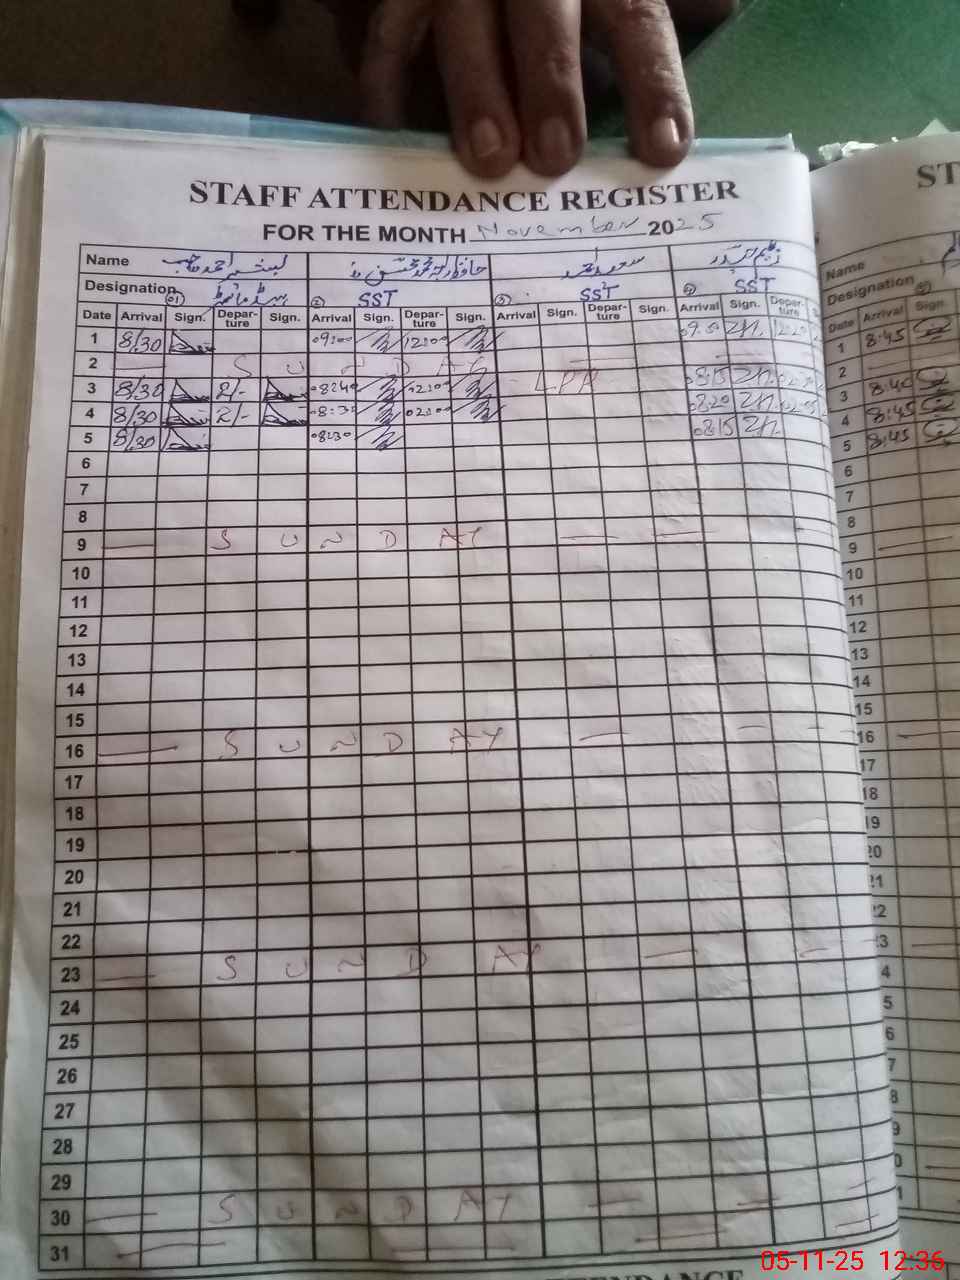 STAFF ATTENDANCE REGISTER
FOR THE MONTH November 2025
Name بشیر احمد صاحب سعید احمد
Designation (1) ہیڈ ماسٹر (2) SST (3) SST (4) SST
Date Arrival Sign. Depar-ture Sign. Arrival Sign. Depar-ture Sign. Arrival Sign. Depar-ture Sign. Arrival Sign. Depar-ture
1 8/30 09:00 12:00
2 — S U N D A Y —
3 8/30 2/- 08:40 02:00 LPR 08:15
4 8/30 2/- 08:30 02:00 08:20
5 8/30 08:30 08:15
6
7
8
9 — S U N D AY — —
10
11
12
13
14
15
16 — S U N D AY — — —
17
18
19
20
21
22
23 — S U N D AY — —
24
25
26
27
28
29
30 — S U N D AY — — —
31
ST
Name
Designation
Date Arrival Sign.
1 8:45
2
3 8:40
4 8:45
5 8:45
6
7
8
9
10
11
12
13
14
15
16
17
18
19
20
21
22
23
4
5
6
7
8
9
0
1
TENDANCE
05-11-25 12:36